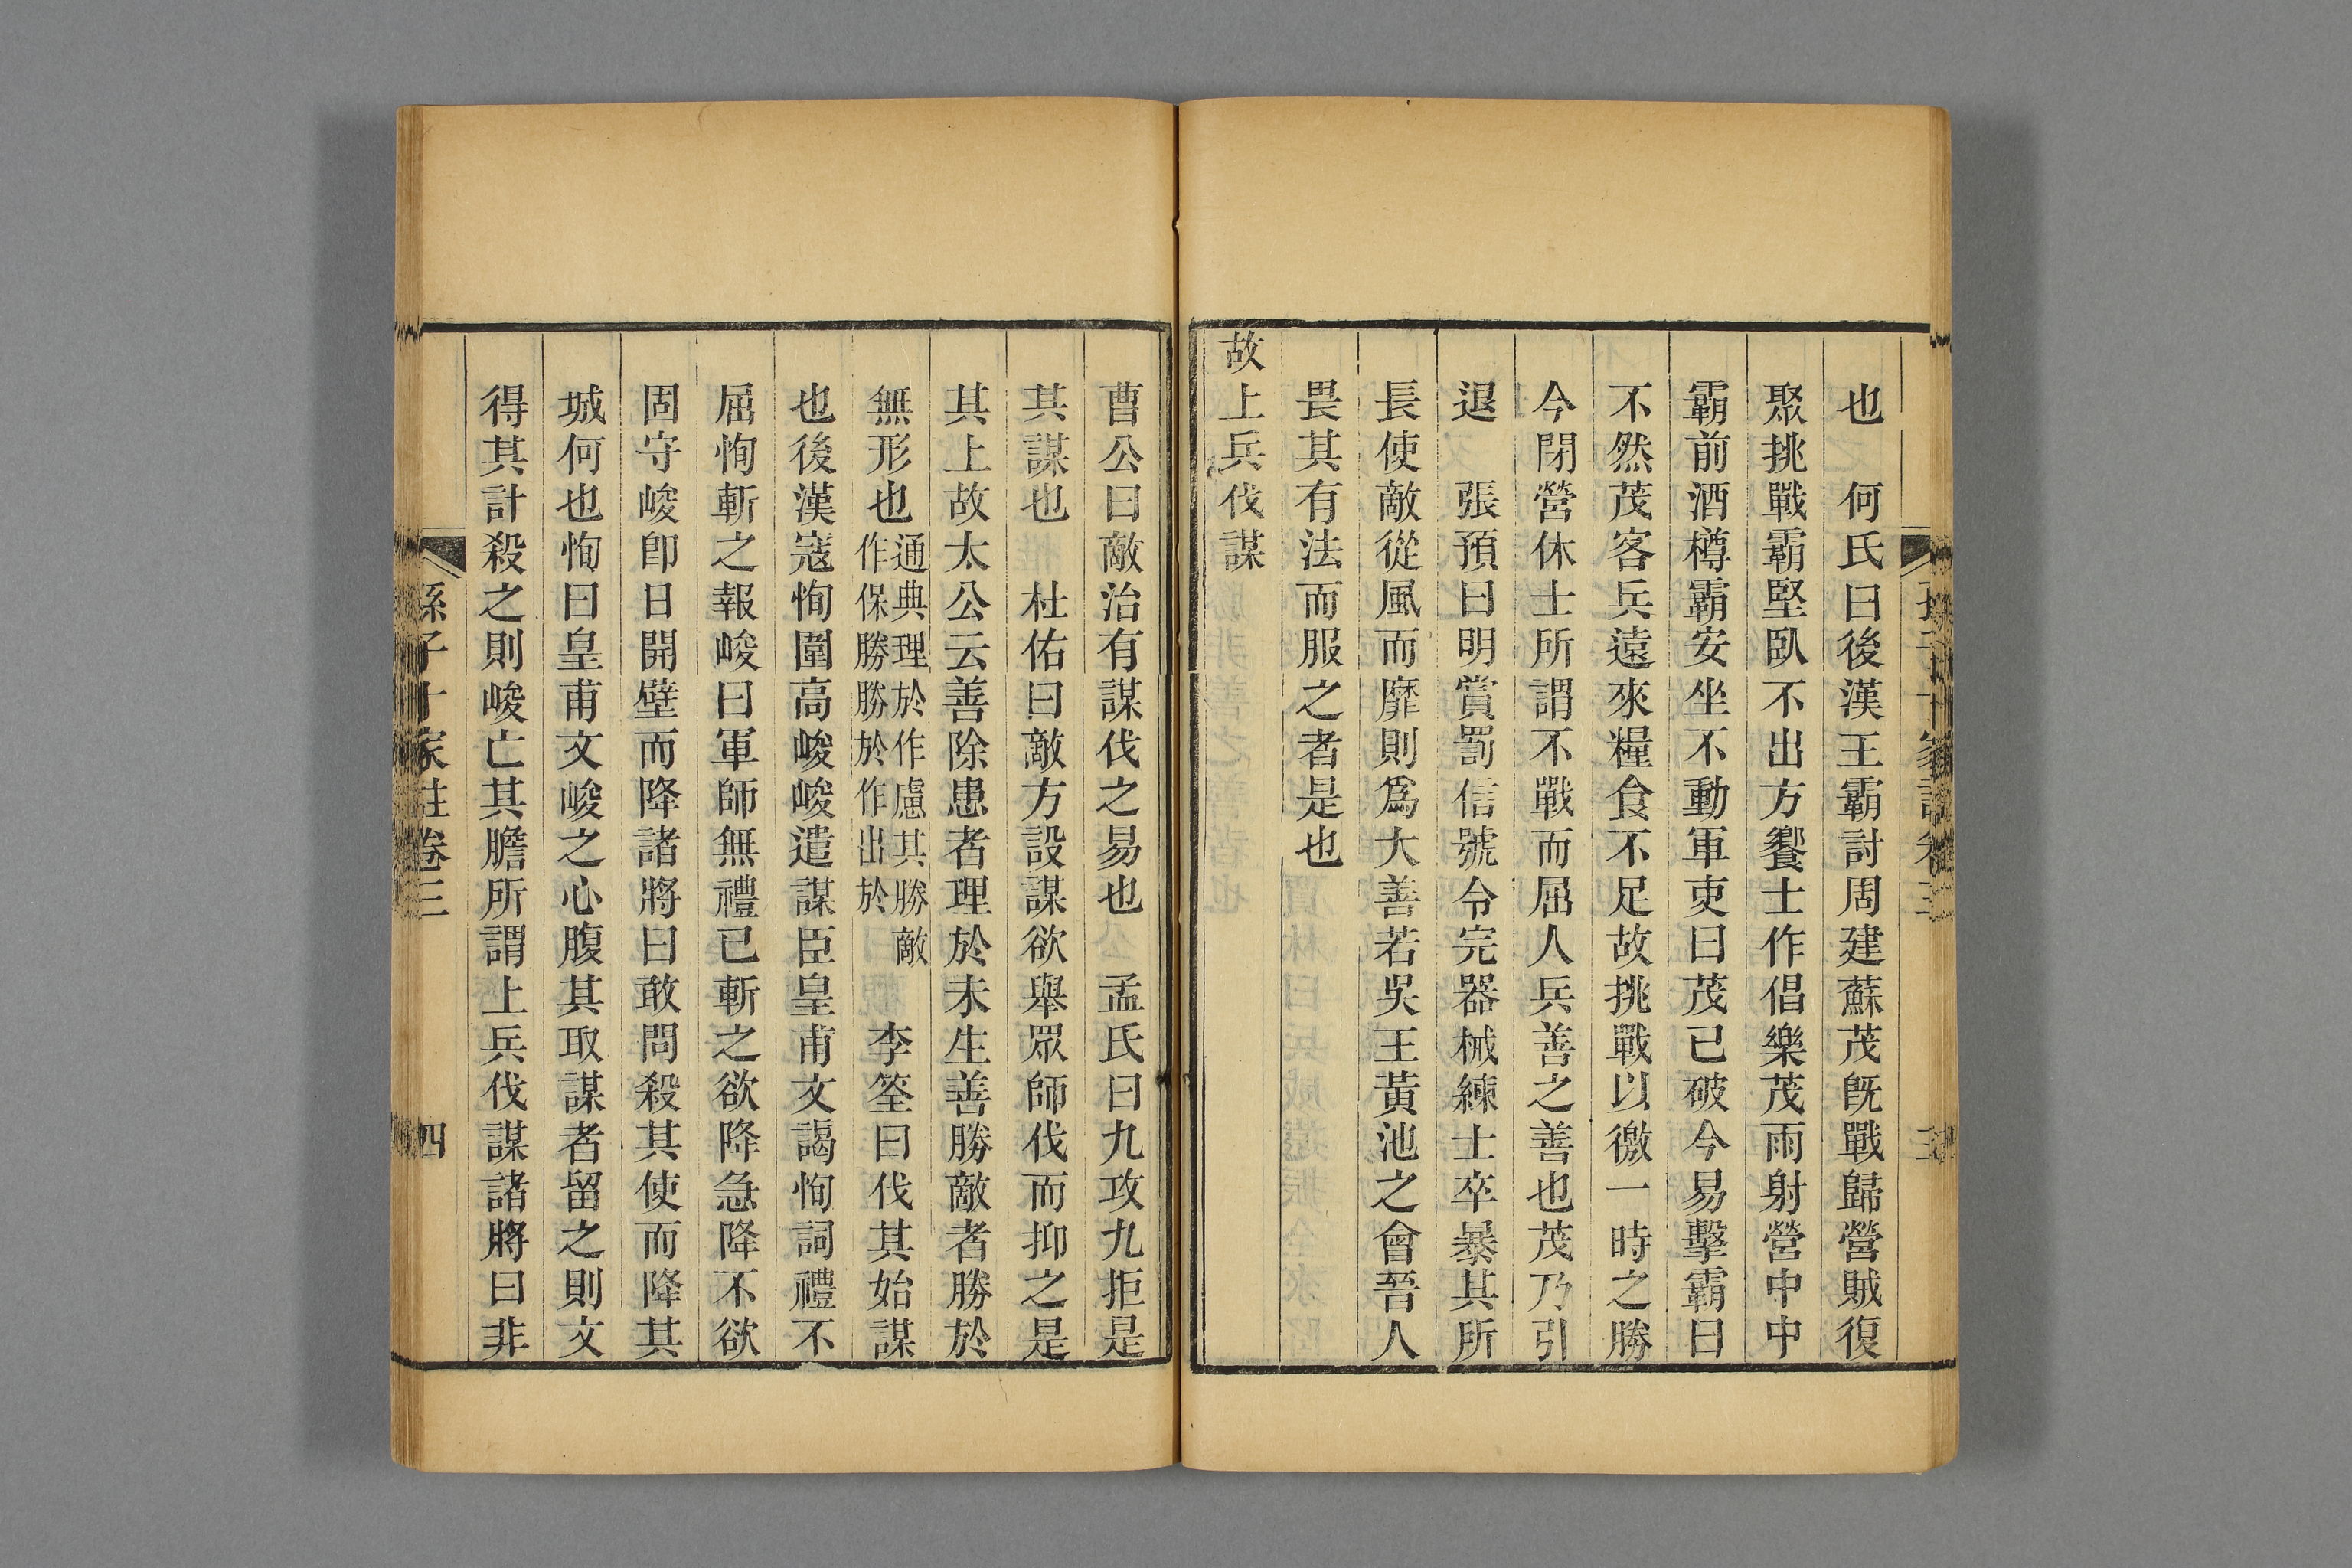 也　何氏曰後漢王霸討周建蘇茂既戰歸營賊復
聚挑戰霸堅臥不出方饗士作倡樂茂雨射營中中
霸前酒樽霸安坐不動軍吏曰茂已破今易擊霸曰
不然茂客兵遠來糧食不足故挑戰以徼一時之勝
今閉營休士所謂不戰而屈人兵善之善也茂乃引
退　張預曰明賞罰信號令完器械練士卒暴其所
長使敵從風而靡則爲大善若吳王黃池之會晉人
畏其有法而服之者是也
故上兵伐謀
曹公曰敵治有謀伐之易也　孟氏曰九攻九拒是
其謀也　杜佑曰敵方設謀欲舉眾師伐而抑之是
其上故太公云善除患者理於未生善勝敵者勝於
無形也通典理於作慮其勝敵作保勝勝於作出於　李筌曰伐其始謀
也後漢寇恂圍高峻峻遣謀臣皇甫文謁恂詞禮不
屈恂斬之報峻曰軍師無禮已斬之欲降急降不欲
固守峻卽日開壁而降諸將曰敢問殺其使而降其
城何也恂曰皇甫文峻之心腹其取謀者留之則文
得其計殺之則峻亡其膽所謂上兵伐謀諸將曰非
孫子十家註卷三　四